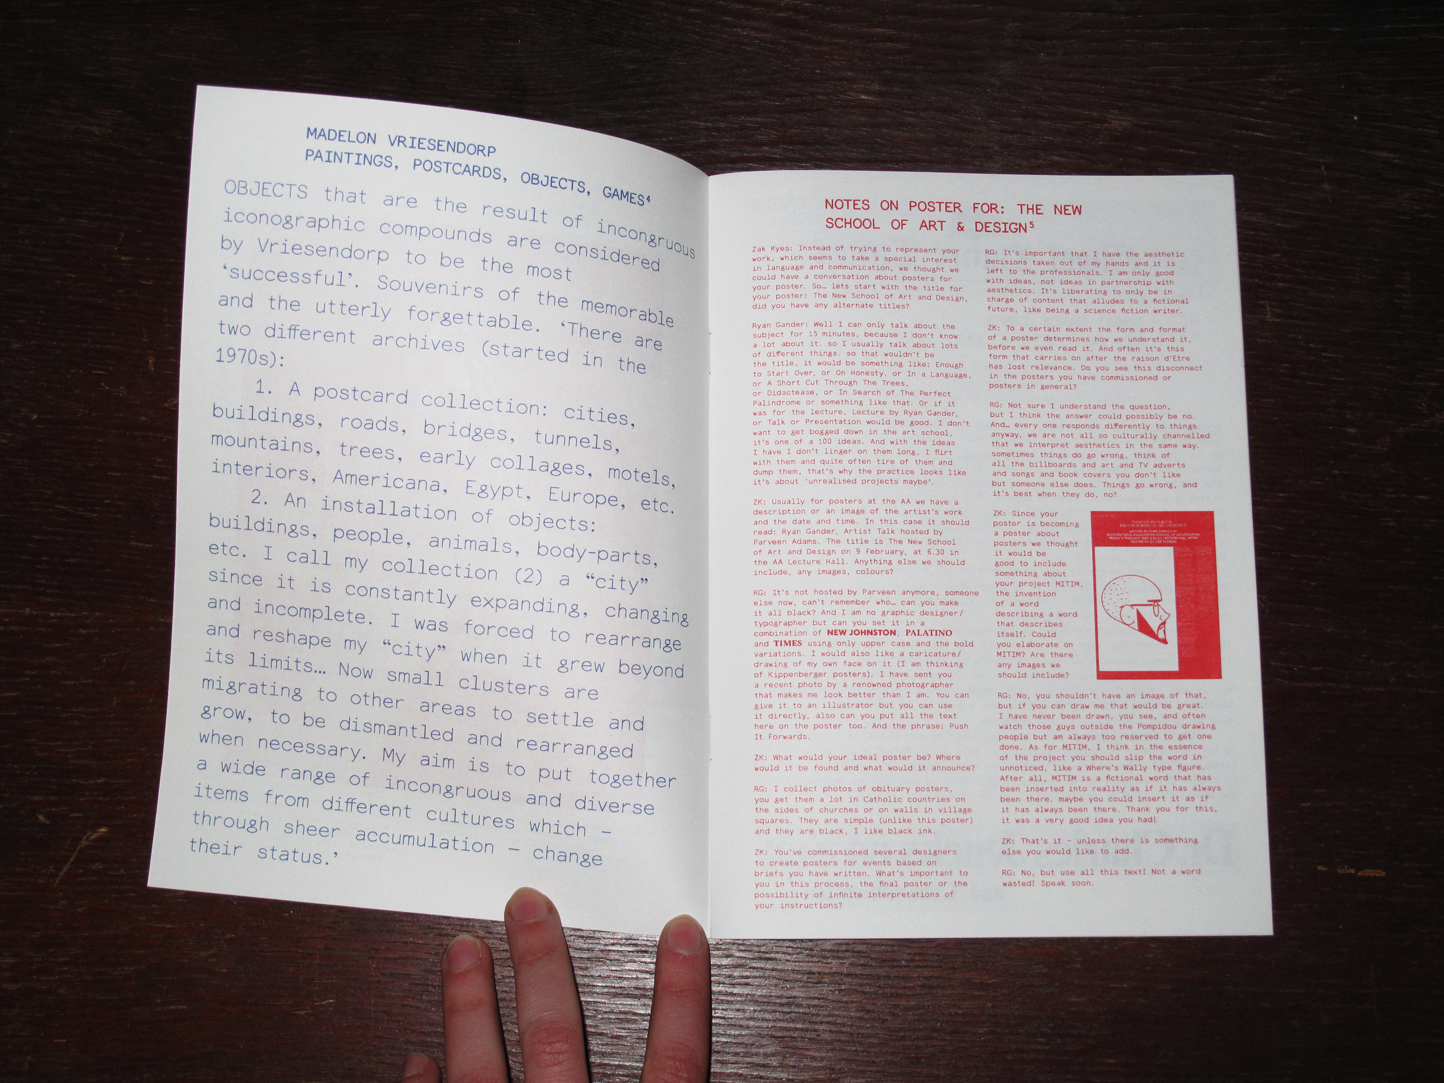 MADELON VRIESENDORP
PAINTINGS, POSTCARDS, OBJECTS, GAMES⁴
OBJECTS that are the result of incongruous
iconographic compounds are considered
by Vriesendorp to be the most
‘successful’. Souvenirs of the memorable
and the utterly forgettable. ‘There are
two different archives (started in the
1970s):
1. A postcard collection: cities,
buildings, roads, bridges, tunnels,
mountains, trees, early collages, motels,
interiors, Americana, Egypt, Europe, etc.
2. An installation of objects:
buildings, people, animals, body-parts,
etc. I call my collection (2) a “city”
since it is constantly expanding, changing
and incomplete. I was forced to rearrange
and reshape my “city” when it grew beyond
its limits… Now small clusters are
migrating to other areas to settle and
grow, to be dismantled and rearranged
when necessary. My aim is to put together
a wide range of incongruous and diverse
items from different cultures which –
through sheer accumulation – change
their status.’
NOTES ON POSTER FOR: THE NEW
SCHOOL OF ART & DESIGN⁵
Zak Kyes: Instead of trying to represent your
work, which seems to take a special interest
in language and communication, we thought we
could have a conversation about posters for
your poster. So… lets start with the title for
your poster: The New School of Art and Design,
did you have any alternate titles?
Ryan Gander: Well I can only talk about the
subject for 15 minutes, because I don't know
a lot about it. so I usually talk about lots
of different things. so that wouldn't be
the title, it would be something like: Enough
to Start Over, or On Honesty, or In a Language,
or A Short Cut Through The Trees,
or Didactease, or In Search of The Perfect
Palindrome or something like that. Or if it
was for the lecture, Lecture by Ryan Gander,
or Talk or Presentation would be good. I don't
want to get bogged down in the art school,
it's one of a 100 ideas. And with the ideas
I have I don't linger on them long, I flirt
with them and quite often tire of them and
dump them, that's why the practice looks like
it's about 'unrealised projects maybe'.
ZK: Usually for posters at the AA we have a
description or an image of the artist's work
and the date and time. In this case it should
read: Ryan Gander, Artist Talk hosted by
Parveen Adams. The title is The New School
of Art and Design on 9 February, at 6.30 in
the AA Lecture Hall. Anything else we should
include, any images, colours?
RG: It's not hosted by Parveen anymore, someone
else now, can't remember who… can you make
it all black? And I am no graphic designer/
typographer but can you set it in a
combination of NEW JOHNSTON, PALATINO
and TIMES using only upper case and the bold
variations. I would also like a caricature/
drawing of my own face on it (I am thinking
of Kippenberger posters). I have sent you
a recent photo by a renowned photographer
that makes me look better than I am. You can
give it to an illustrator but you can use
it directly, also can you put all the text
here on the poster too. And the phrase: Push
It Forwards.
ZK: What would your ideal poster be? Where
would it be found and what would it announce?
RG: I collect photos of obituary posters,
you get them a lot in Catholic countries on
the sides of churches or on walls in village
squares. They are simple (unlike this poster)
and they are black, I like black ink.
ZK: You've commissioned several designers
to create posters for events based on
briefs you have written. What's important to
you in this process, the final poster or the
possibility of infinite interpretations of
your instructions?
RG: It's important that I have the aesthetic
decisions taken out of my hands and it is
left to the professionals. I am only good
with ideas, not ideas in partnership with
aesthetics. It's liberating to only be in
charge of content that alludes to a fictional
future, like being a science fiction writer.
ZK: To a certain extent the form and format
of a poster determines how we understand it,
before we even read it. And often it's this
form that carries on after the raison d'Etre
has lost relevance. Do you see this disconnect
in the posters you have commissioned or
posters in general?
RG: Not sure I understand the question,
but I think the answer could possibly be no.
And… every one responds differently to things
anyway, we are not all so culturally channelled
that we interpret aesthetics in the same way.
sometimes things do go wrong, think of
all the billboards and art and TV adverts
and songs and book covers you don't like
but someone else does. Things go wrong, and
it's best when they do, no?
ZK: Since your
poster is becoming
a poster about
posters we thought
it would be
good to include
something about
your project MITIM,
the invention
of a word
describing a word
that describes
itself. Could
you elaborate on
MITIM? Are there
any images we
should include?
RG: No, you shouldn't have an image of that,
but if you can draw me that would be great.
I have never been drawn, you see, and often
watch those guys outside the Pompidou drawing
people but am always too reserved to get one
done. As for MITIM, I think in the essence
of the project you should slip the word in
unnoticed, like a Where's Wally type figure.
After all, MITIM is a fictional word that has
been inserted into reality as if it has always
been there. maybe you could insert it as if
it has always been there. Thank you for this,
it was a very good idea you had!
ZK: That's it - unless there is something
else you would like to add.
RG: No, but use all this text! Not a word
wasted! Speak soon.